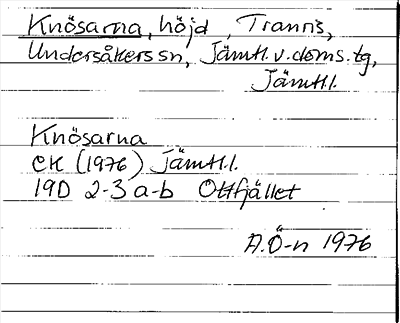 Knösarna, höjd, Tranris,
Undersåkers sn, Jämtl. v. doms. tg,
Jämtl.l.
Knösarna
EK (1976) Jämtl.l.
19D 2-3 a-b Ottfjället
A.Ö-n 1976